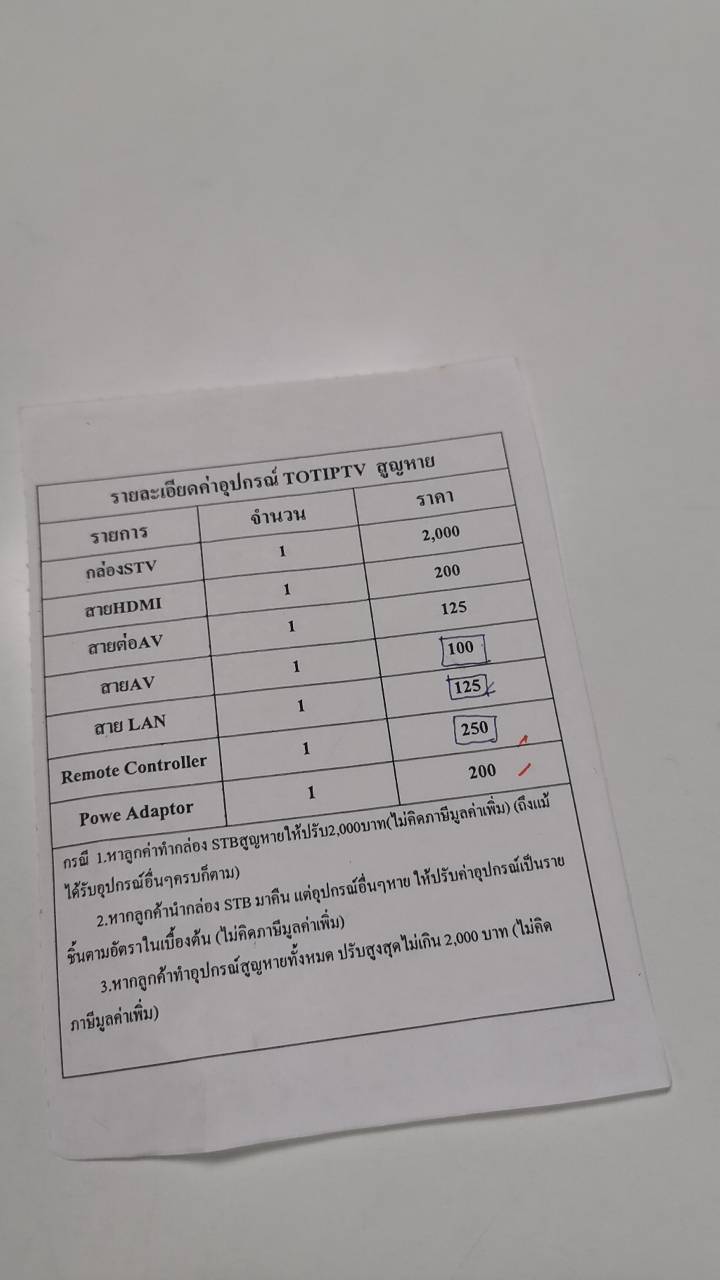 รายละเอียดค่าอุปกรณ์ TOTIPTV สูญหาย
รายการ จำนวน ราคา
กล่องSTV 1 2,000
สายHDMI 1 200
สายต่อAV 1 125
สายAV 1 100
สาย LAN 1 125
Remote Controller 1 250
Powe Adaptor 1 200
กรณี 1.หาลูกค่าทำกล่อง STBสูญหายให้ปรับ2,000บาท(ไม่คิดภาษีมูลค่าเพิ่ม) (ถึงแม้
ได้รับอุปกรณ์อื่นๆครบก็ตาม)
2.หากลูกค้านำกล่อง STB มาคืน แต่อุปกรณ์อื่นๆหาย ให้ปรับค่าอุปกรณ์เป็นราย
ชิ้นตามอัตราในเบื้องต้น (ไม่คิดภาษีมูลค่าเพิ่ม)
3.หากลูกค้าทำอุปกรณ์สูญหายทั้งหมด ปรับสูงสุดไม่เกิน 2,000 บาท (ไม่คิด
ภาษีมูลค่าเพิ่ม)